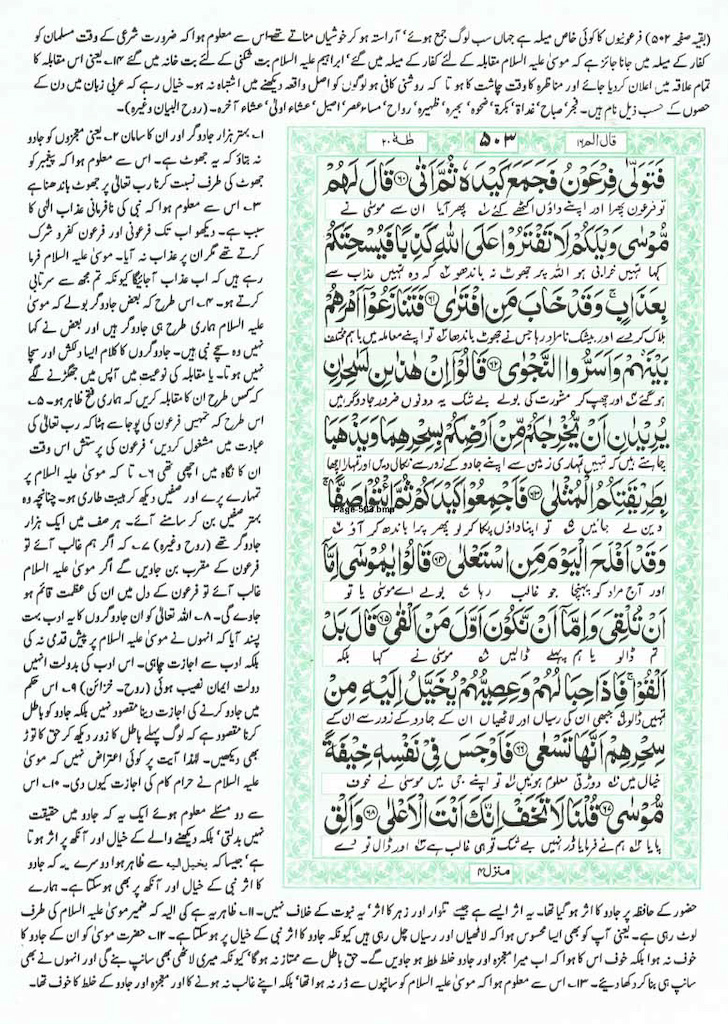 (بقیہ صفحہ ۵۰۲) فرعونیوں کا کوئی خاص میلہ ہے جہاں سب لوگ جمع ہوتے' آراستہ ہو کر خوشیاں مناتے تھے۔ اس سے معلوم ہوا کہ ضرورت شرعی کے وقت مسلمان کو
کفار کے میلہ میں جانا جائز ہے کہ موسیٰ علیہ السلام مقابلہ کے لئے کفار کے میلہ میں گئے' ابراہیم علیہ السلام بت شکنی کے لئے بت خانہ میں گئے ۱۴۔ یعنی اس مقابلہ کا
تمام علاقہ میں اعلان کردیا جائے اور مناظرہ کا وقت چاشت کا ہو تا کہ روشنی کافی ہو لوگوں کو اصل واقعہ دیکھنے میں اشتباہ نہ ہو۔ خیال رہے کہ عربی زبان میں دن کے
حصوں کے حسب ذیل نام ہیں۔ فجر' صباح' غداۃ' بکرۃ' ضحوہ' ہجیرہ' ظہیرہ' رواح' مساء' عصر' اصیل' عشاء اولیٰ' عشاء آخرہ۔ (روح البیان وغیرہ)۔
قال الم ۱۶
۵۰۳
طٰهٰ ۲۰
فَتَوَلّٰى فِرْعَوْنُ فَجَمَعَ كَيْدَهٗ ثُمَّ اَتٰى ﴿۶۰﴾ قَالَ لَهُمْ
تو فرعون پھرا اور اپنے داؤں اکٹھے کئے پھر آیا ان سے موسیٰ نے
مُّوْسٰى وَيْلَكُمْ لَا تَفْتَرُوْا عَلَى اللّٰهِ كَذِبًا فَيُسْحِتَكُمْ
کہا تمہیں خرابی ہو اللہ پر جھوٹ نہ باندھو کہ وہ تمہیں عذاب سے
بِعَذَابٍ ۚ وَقَدْ خَابَ مَنِ افْتَرٰى ﴿۶۱﴾ فَتَنَازَعُوْٓا اَمْرَهُمْ
ہلاک کر دے اور بیشک نامراد رہا جس نے جھوٹ باندھا تو اپنے معاملہ میں باہم مختلف
بَيْنَهُمْ وَاَسَرُّوا النَّجْوٰى ﴿۶۲﴾ قَالُوْٓا اِنْ هٰذٰىنِ لَسٰحِرٰنِ
ہو گئے اور چھپ کر مشورت کی بولے بے شک یہ دونوں ضرور جادوگر ہیں
يُرِيْدٰنِ اَنْ يُّخْرِجٰكُمْ مِّنْ اَرْضِكُمْ بِسِحْرِهِمَا وَيَذْهَبَا
چاہتے ہیں کہ تمہیں تمہاری زمین سے اپنے جادو کے زور سے نکال دیں اور تمہارا اچھا
بِطَرِيْقَتِكُمُ الْمُثْلٰى ﴿۶۳﴾ فَاَجْمِعُوْا كَيْدَكُمْ ثُمَّ ائْتُوْا صَفًّا ۚ
Page-503.bmp
دین لے جائیں تو اپنا داؤں پکا کر لو پھر پرا باندھ کر آؤ
وَقَدْ اَفْلَحَ الْيَوْمَ مَنِ اسْتَعْلٰى ﴿۶۴﴾ قَالُوْا يٰمُوْسٰٓى اِمَّآ
اور آج مراد کو پہنچا جو غالب رہا بولے اے موسیٰ یا تو
اَنْ تُلْقِيَ وَاِمَّآ اَنْ نَّكُوْنَ اَوَّلَ مَنْ اَلْقٰى ﴿۶۵﴾ قَالَ بَلْ
تم ڈالو یا ہم پہلے ڈالیں موسیٰ نے کہا بلکہ
اَلْقُوْا ۚ فَاِذَا حِبَالُهُمْ وَعِصِيُّهُمْ يُخَيَّلُ اِلَيْهِ مِنْ
تمہیں ڈالو جبھی ان کی رسیاں اور لاٹھیاں ان کے جادو کے زور سے ان کے
سِحْرِهِمْ اَنَّهَا تَسْعٰى ﴿۶۶﴾ فَاَوْجَسَ فِيْ نَفْسِهٖ خِيْفَةً
خیال میں دوڑتی معلوم ہوئیں تو اپنے جی میں موسیٰ نے خوف
مُّوْسٰى ﴿۶۷﴾ قُلْنَا لَا تَخَفْ اِنَّكَ اَنْتَ الْاَعْلٰى ﴿۶۸﴾ وَاَلْقِ
پایا ہم نے فرمایا ڈر نہیں بے شک تو ہی غالب ہے اور ڈال تو دے
منزل ۴
۱۔ بہتر ہزار جادوگر اور ان کا سامان ۲۔ یعنی معجزوں کو جادو
نہ بتاؤ کہ یہ جھوٹ ہے۔ اس سے معلوم ہوا کہ پیغمبر کو
جھوٹ کی طرف نسبت کرنا رب تعالیٰ پر جھوٹ باندھنا ہے
۳۔ اس سے معلوم ہوا کہ نبی کی نافرمانی عذاب الٰہی کا
سبب ہے۔ دیکھو اب تک فرعونی اور فرعون کفر و شرک
کرتے تھے مگر ان پر عذاب نہ آیا۔ موسیٰ علیہ السلام فرما
رہے ہیں کہ اب عذاب آجائیگا کیونکہ تم مجھ سے سرتابی
کرتے ہو۔ ۴۔ اس طرح کہ بعض جادوگر بولے کہ موسیٰ
علیہ السلام ہماری طرح ہی جادوگر ہیں اور بعض نے کہا
نہیں وہ سچے نبی ہیں۔ جادوگروں کا کلام ایسا دلکش اور سچا
نہیں ہوتا۔ یا مقابلہ کی نوعیت میں آپس میں جھگڑنے لگے
کہ کس طرح ان کا مقابلہ کریں کہ ہماری فتح ظاہر ہو۔ ۵۔
اس طرح کہ تمہیں فرعون کی پوجا سے ہٹا کر رب تعالیٰ کی
عبادت میں مشغول کردیں' فرعون کی پرستش اس وقت
ان کا نگاہ میں اچھی تھی ۶۔ تا کہ موسیٰ علیہ السلام پر
تمہارے پرے اور صفیں دیکھ کر ہیبت طاری ہو۔ چنانچہ وہ
بہتر صفیں بن کر سامنے آئے۔ ہر صف میں ایک ہزار
جادوگر تھے (روح وغیرہ) ۷۔ کہ اگر ہم غالب آئے تو
فرعون کے مقرب بن جاویں گے اگر موسیٰ علیہ السلام
غالب آئے تو فرعون کے دل میں ان کی عظمت قائم ہو
جاوے گی۔ ۸۔ اللہ تعالیٰ کو ان جادوگروں کا یہ ادب بہت
پسند آیا کہ انہوں نے موسیٰ علیہ السلام پر پیش قدمی نہ کی
بلکہ ادب سے اجازت چاہی۔ اس ادب کی بدولت انہیں
دولت ایمان نصیب ہوئی (روح۔ خزائن) ۹۔ اس حکم
میں جادو کرنے کی اجازت دینا مقصود نہیں بلکہ جادو کو باطل
کرنا مقصود ہے کہ لوگ پہلے باطل کا زور دیکھ کر حق کا توڑ
بھی دیکھیں۔ لہٰذا آیت پر کوئی اعتراض نہیں کہ موسیٰ
علیہ السلام نے حرام کام کی اجازت کیوں دی۔ ۱۰۔ اس
سے دو مسئلے معلوم ہوئے ایک یہ کہ جادو میں حقیقت
نہیں بدلتی' بلکہ دیکھنے والے کے خیال اور آنکھ پر اثر ہوتا
ہے' جیسا کہ یخیل الیہ سے ظاہر ہوا دوسرے یہ کہ جادو
کا اثر نبی کے خیال اور آنکھ پر بھی ہو سکتا ہے۔ ہمارے
حضور کے حافظہ پر جادو کا اثر ہو گیا تھا۔ یہ اثر ایسے ہی ہے جیسے تلوار اور زہر کا اثر' یہ نبوت کے خلاف نہیں۔ ۱۱۔ ظاہر یہ ہے کہ الیہ کہ ضمیر موسیٰ علیہ السلام کی طرف
لوٹ رہی ہے۔ یعنی آپ کو بھی ایسا محسوس ہوا کہ لاٹھیاں اور رسیاں چل رہی ہیں کیونکہ جادو کا اثر نبی کے خیال پر ہو سکتا ہے۔ ۱۲۔ حضرت موسیٰ کو ان کے جادو کا
خوف نہ ہوا بلکہ خوف اس کا ہوا کہ اب میرا معجزہ اور جادو خلط ملط ہو جاویں گے۔ حق باطل سے ممتاز نہ ہو گا' کیونکہ میری لاٹھی بھی سانپ بنے گی اور انہوں نے بھی
سانپ ہی بنا کر دکھا دیئے۔ ۱۳۔ اس سے معلوم ہوا کہ موسیٰ علیہ السلام کو سانپوں سے ڈر نہ ہوا تھا' بلکہ اپنے غالب نہ ہونے کا اور معجزہ اور جادو کے خلط کا خوف تھا۔